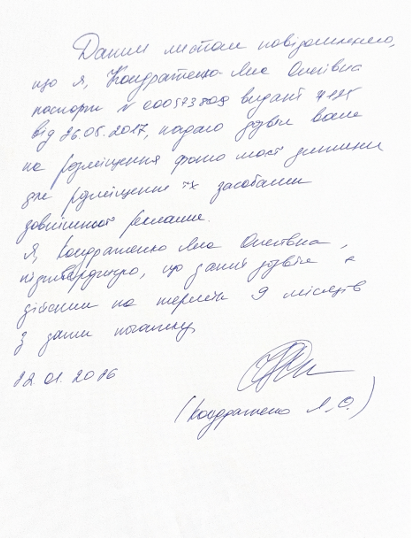 Даним листом повідомляємо,
що я, Кондратенко Яна Олегівна
паспорт № 000573808 видант
від 26.05.2017, надаю дозвіл
на розміщення фото моєї дитини
для розміщення їх засобами
зовнішньої реклами.
Я, Кондратенко Яна Олегівна,
підтверджую, що даний дозвіл є
дійсним на термін 9 місяців
З дати початку
(Кондратенко Я.О.)